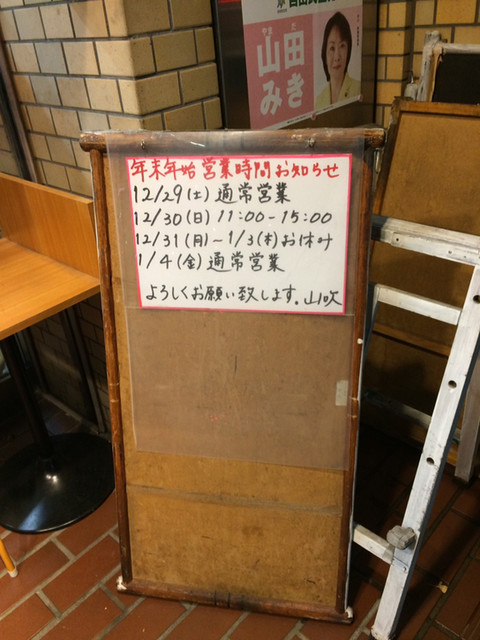 山田
やまだ
みき
年末年始営業時間お知らせ
12/29(土)通常営業
12/30(日) 11:00-15:00
12/31(月)~1/3(木)お休み
1/4(金)通常営業
よろしくお願い致します。山吹